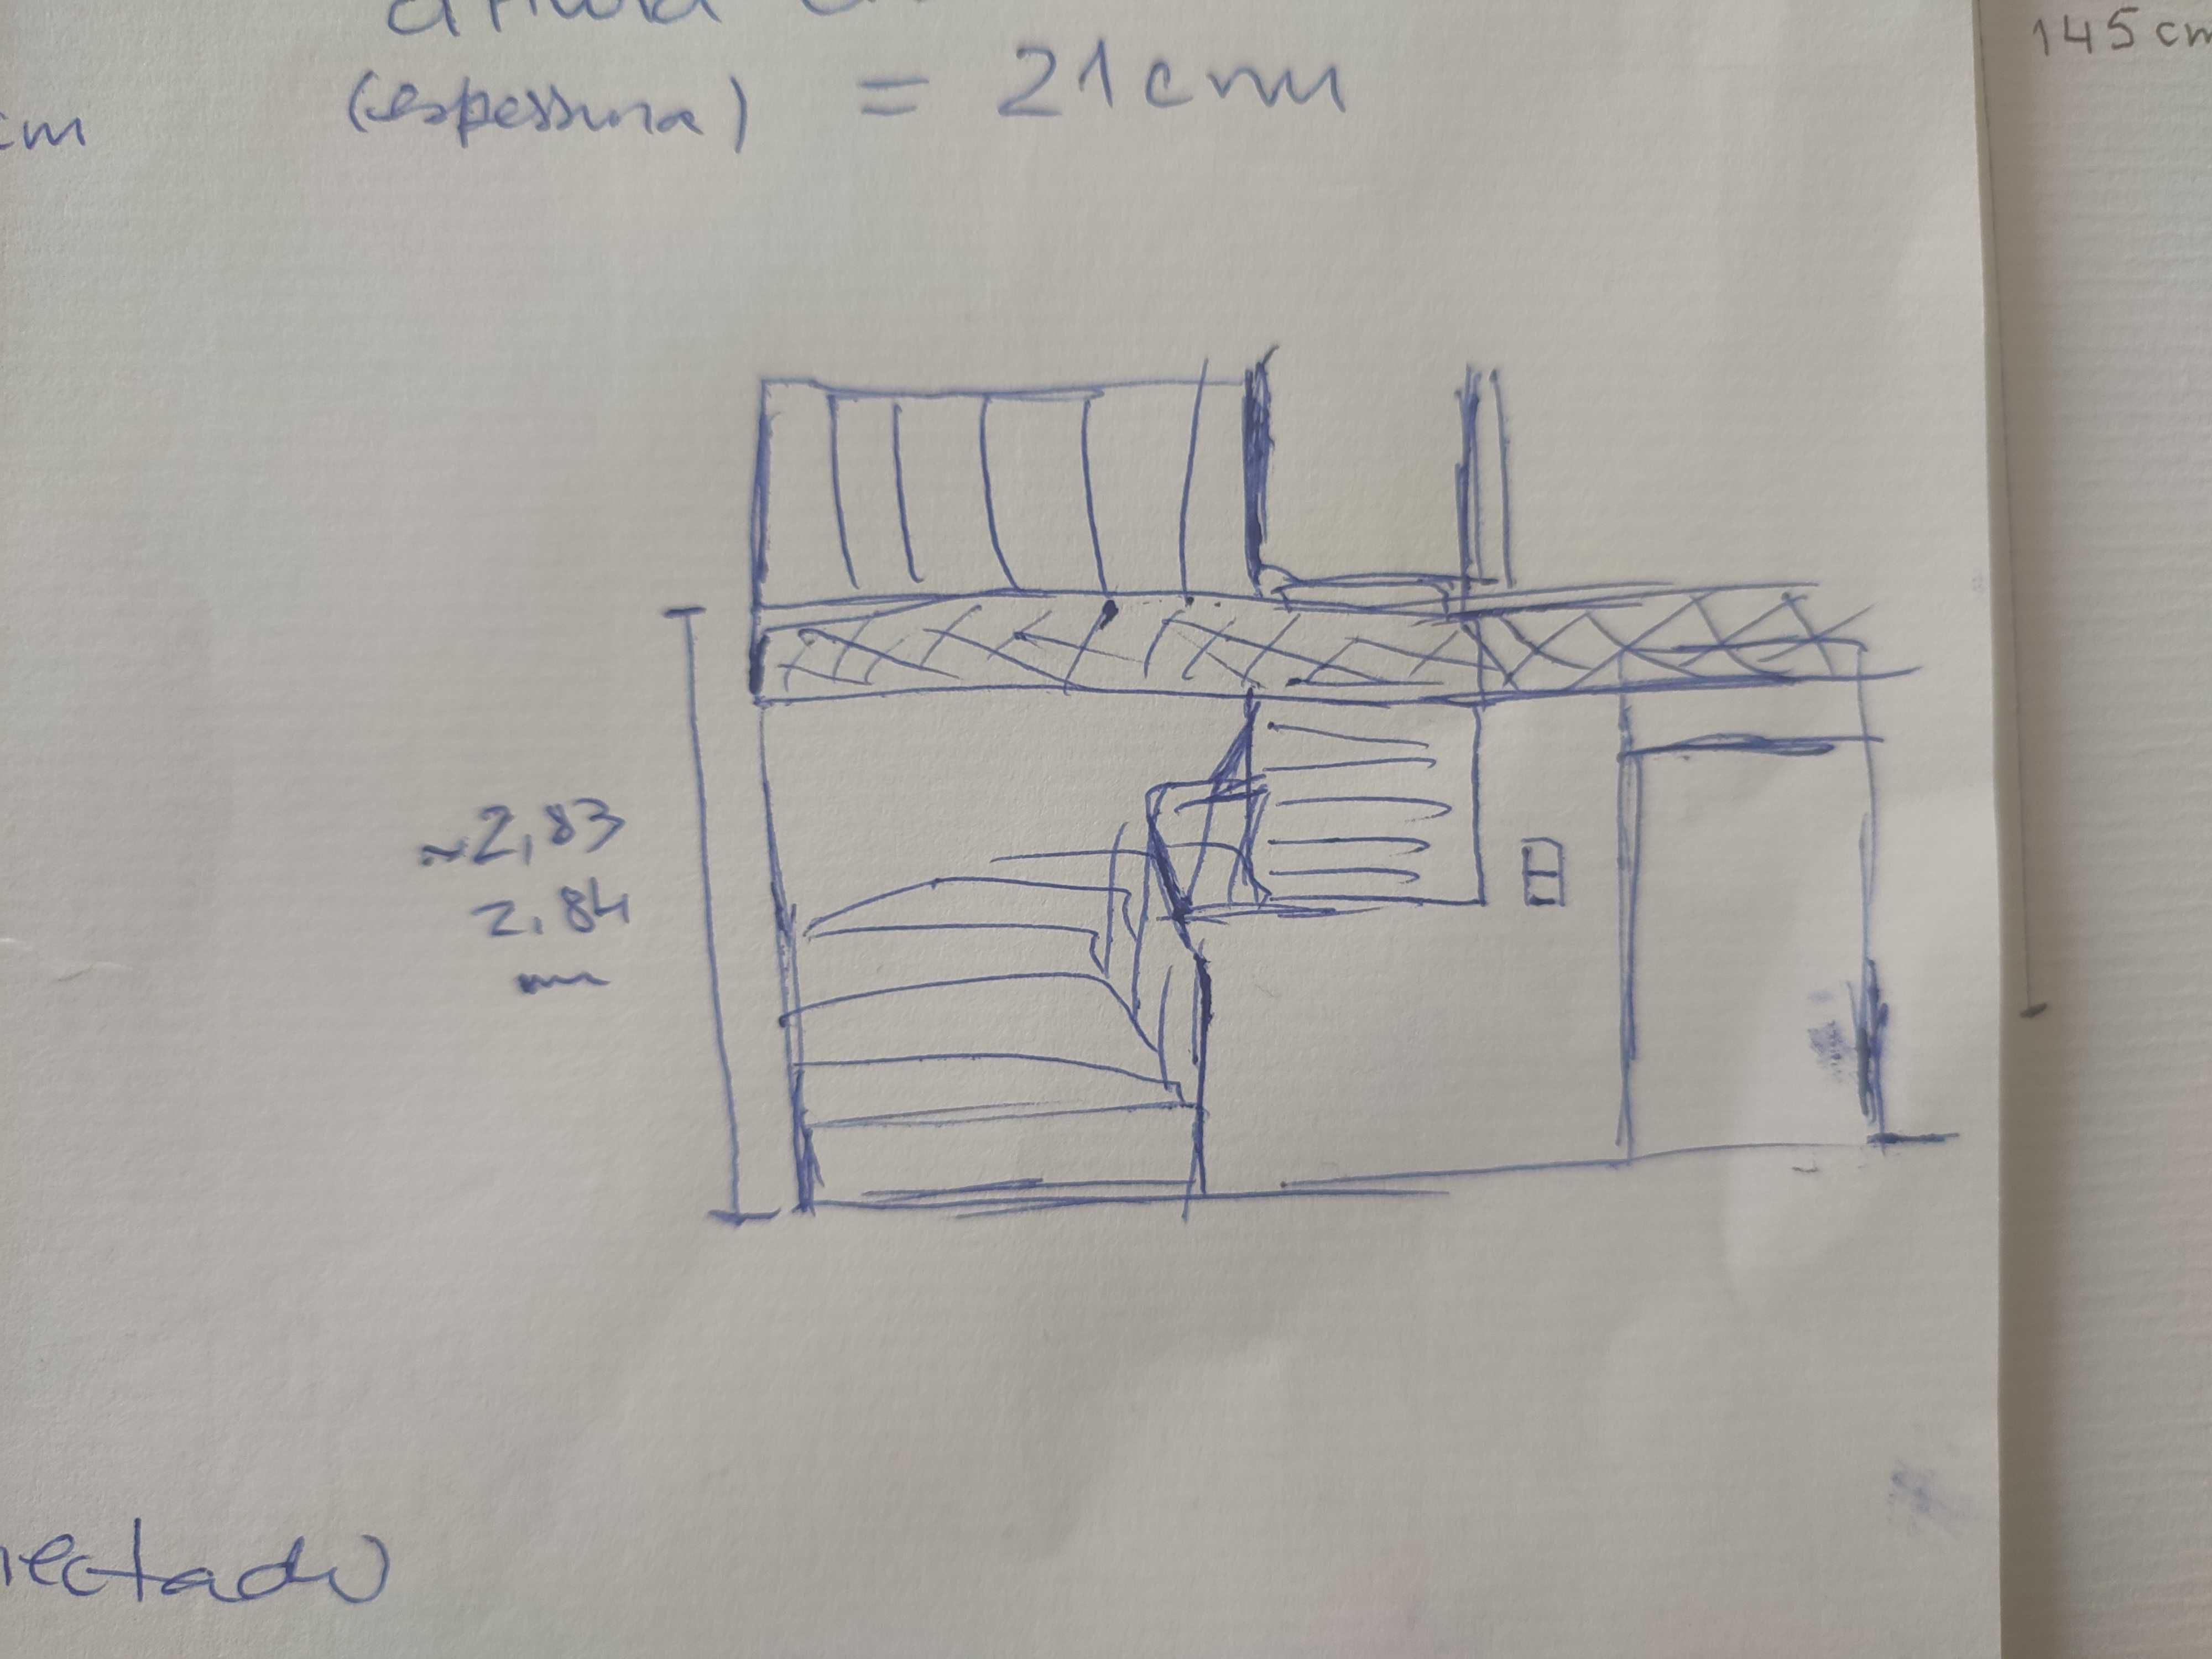 (espessura) = 21cm
145 cm
cm
~2,83
2.84
m